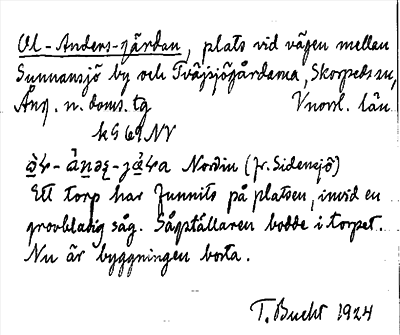 Ol-Anders-gärdan, plats vid vägen mellan
Sunnansjö by och Tväsjögårdarna, Skorpeds sn,
Ång. n. doms. tg Vnorrl. län
k G 69 NV
Nordin (fr. Sidensjö)
Ett torp har funnits på platsen, invid en
grovbladig såg. Sågställaren bodde i torpet.
Nu är byggningen borta.
T. Bucht 1924